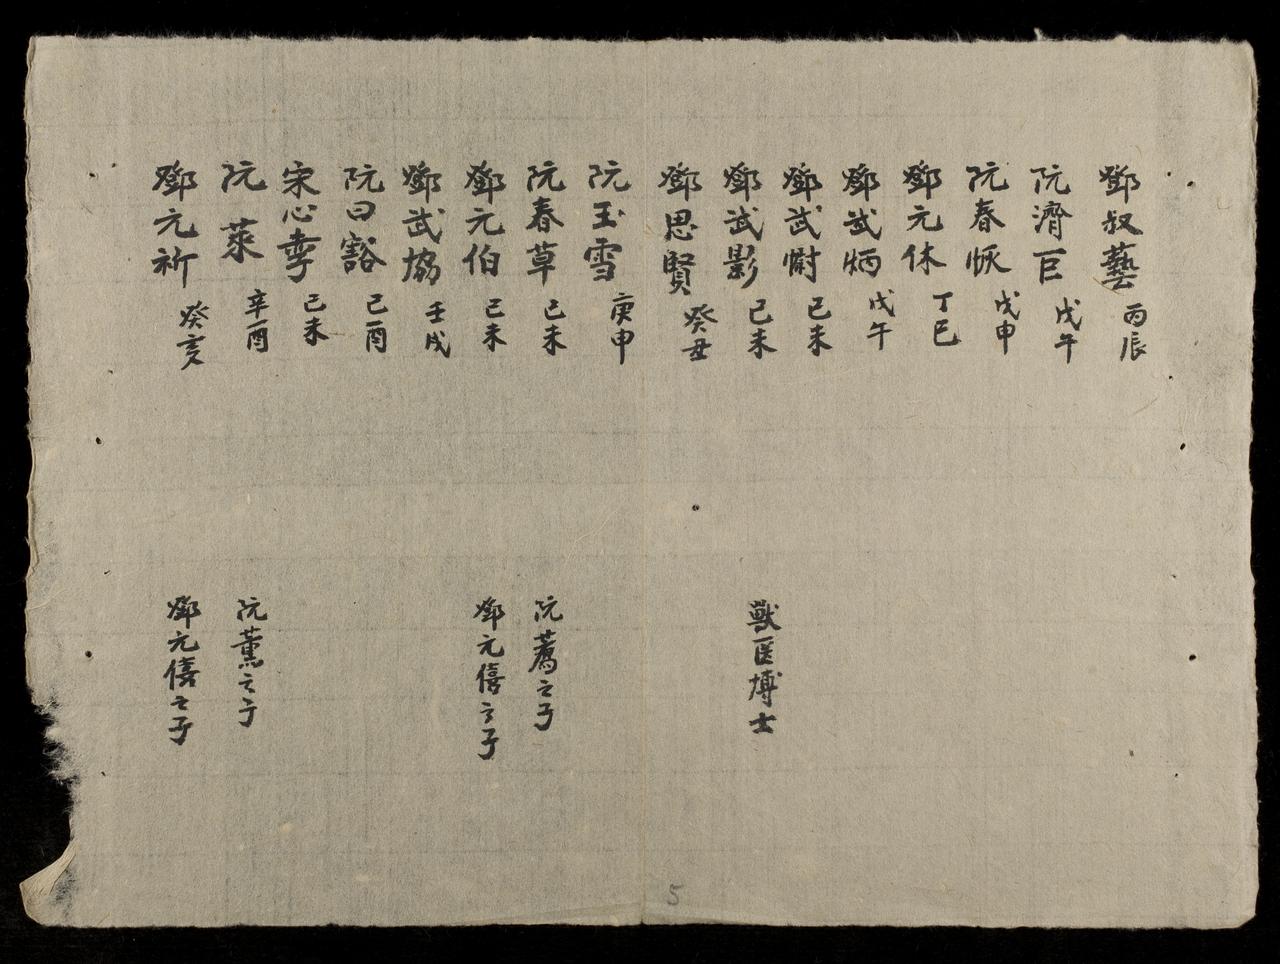 鄧叔藝 丙辰
阮濟巨 戊午
阮春恢 戊申
鄧元休 丁巳
鄧武炳 戊午
鄧武㷉 己未
鄧武影 己未 獸医博士
鄧思賢 癸丑
阮玉雪 庚申
阮春草 己未 阮薦之子
鄧元伯 己未 鄧元僖之子
鄧武協 壬戌
阮曰豁 己酉
宋心 己未
阮萊 辛酉 阮薰之子
鄧元祈 癸亥 鄧元僖之子
5